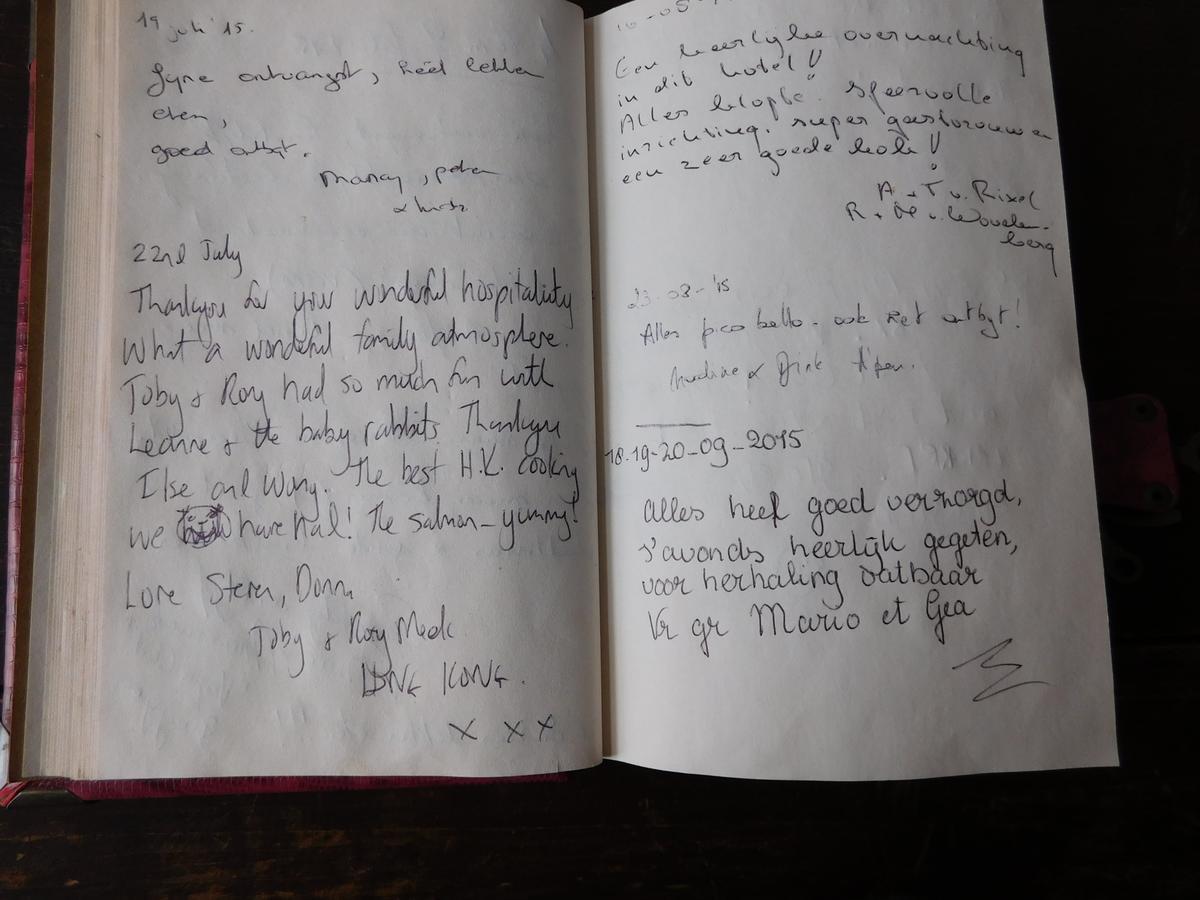 19 juli '15.
Fijne ontvangst, heel lekker
eten,
goed ontbijt.
22nd July
Thankyou for your wonderful hospitaliuty
What a wonderful family atmosphere.
Toby & Rory had so much fun with
Leanne & the baby rabbits. Thankyou
Ilse and Wang. The best H.K. cooking
we have had! The salmon - yummy!
Love Steven, Donna
Toby & Rory
HONG KONG.
x x x
Een heerlijke overnachting
in dit hotel!!
Alles klopte. Sfeervolle
inrichting. super gastvrouw en
een zeer goede kok!!
A + T v. Rixel
R + M v. Wouden-
berg
23-08-'15
Alles pico bello - ook het ontbijt!
18-19-20-09-2015
alles heel goed verzorgd,
s'avonds heerlijk gegeten,
voor herhaling vatbaar
Vr gr Mario et Gea